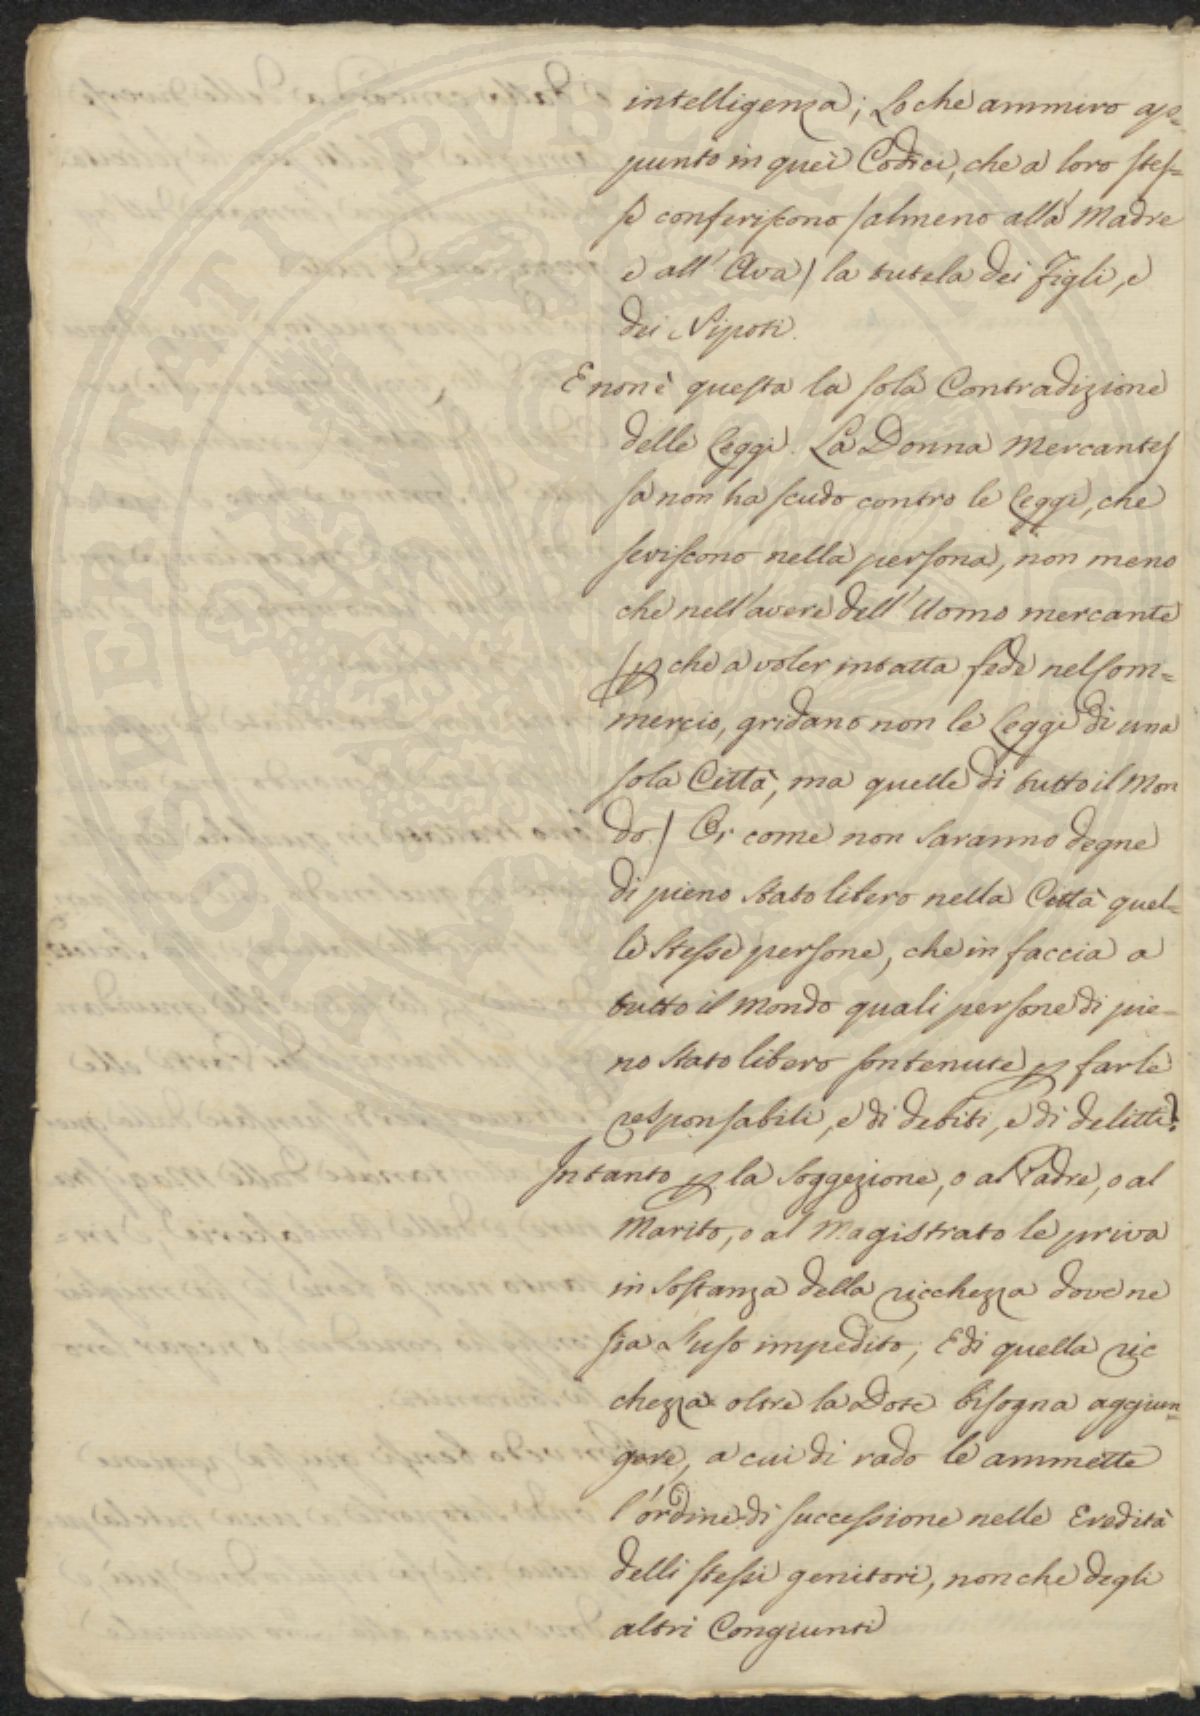 intelligenza; Lo che ammiro ap=
punto in quei Codici, che a loro stes=
se conferiscono (almeno alla Madre
e all' Ava) la tutela dei Figli, e
dei Nipoti.
E non è questa la sola Contradizione
delle Leggi. La Donna Mercantes
sa non ha scudo contro le Leggi, che
seviscono nella persona, non meno
che nell' avere dell' Uomo mercante
(p che a voler intatta fede nel Com=
mercio, gridano non le Leggi di una
sola Città, ma quelle di tutto il Mon
do.) Or come non saranno degne
di pieno stato libero nella Città quel=
le stesse persone, che in faccia a
tutto il Mondo quali persone di pie=
no stato libero son tenute p farle
responsabili, e di debiti, e di delitti?
Intanto p la soggezione, o al Padre, o al
Marito, o al Magistrato le priva
in sostanza della ricchezza dove ne
sia l'uso impedito; E di quella ric
chezza oltre la Dote bisogna aggiun=
gere, a cui di rado le ammette
l'ordine di successione nelle Eredità
delli stessi genitori, non che degli
altri Congiunti